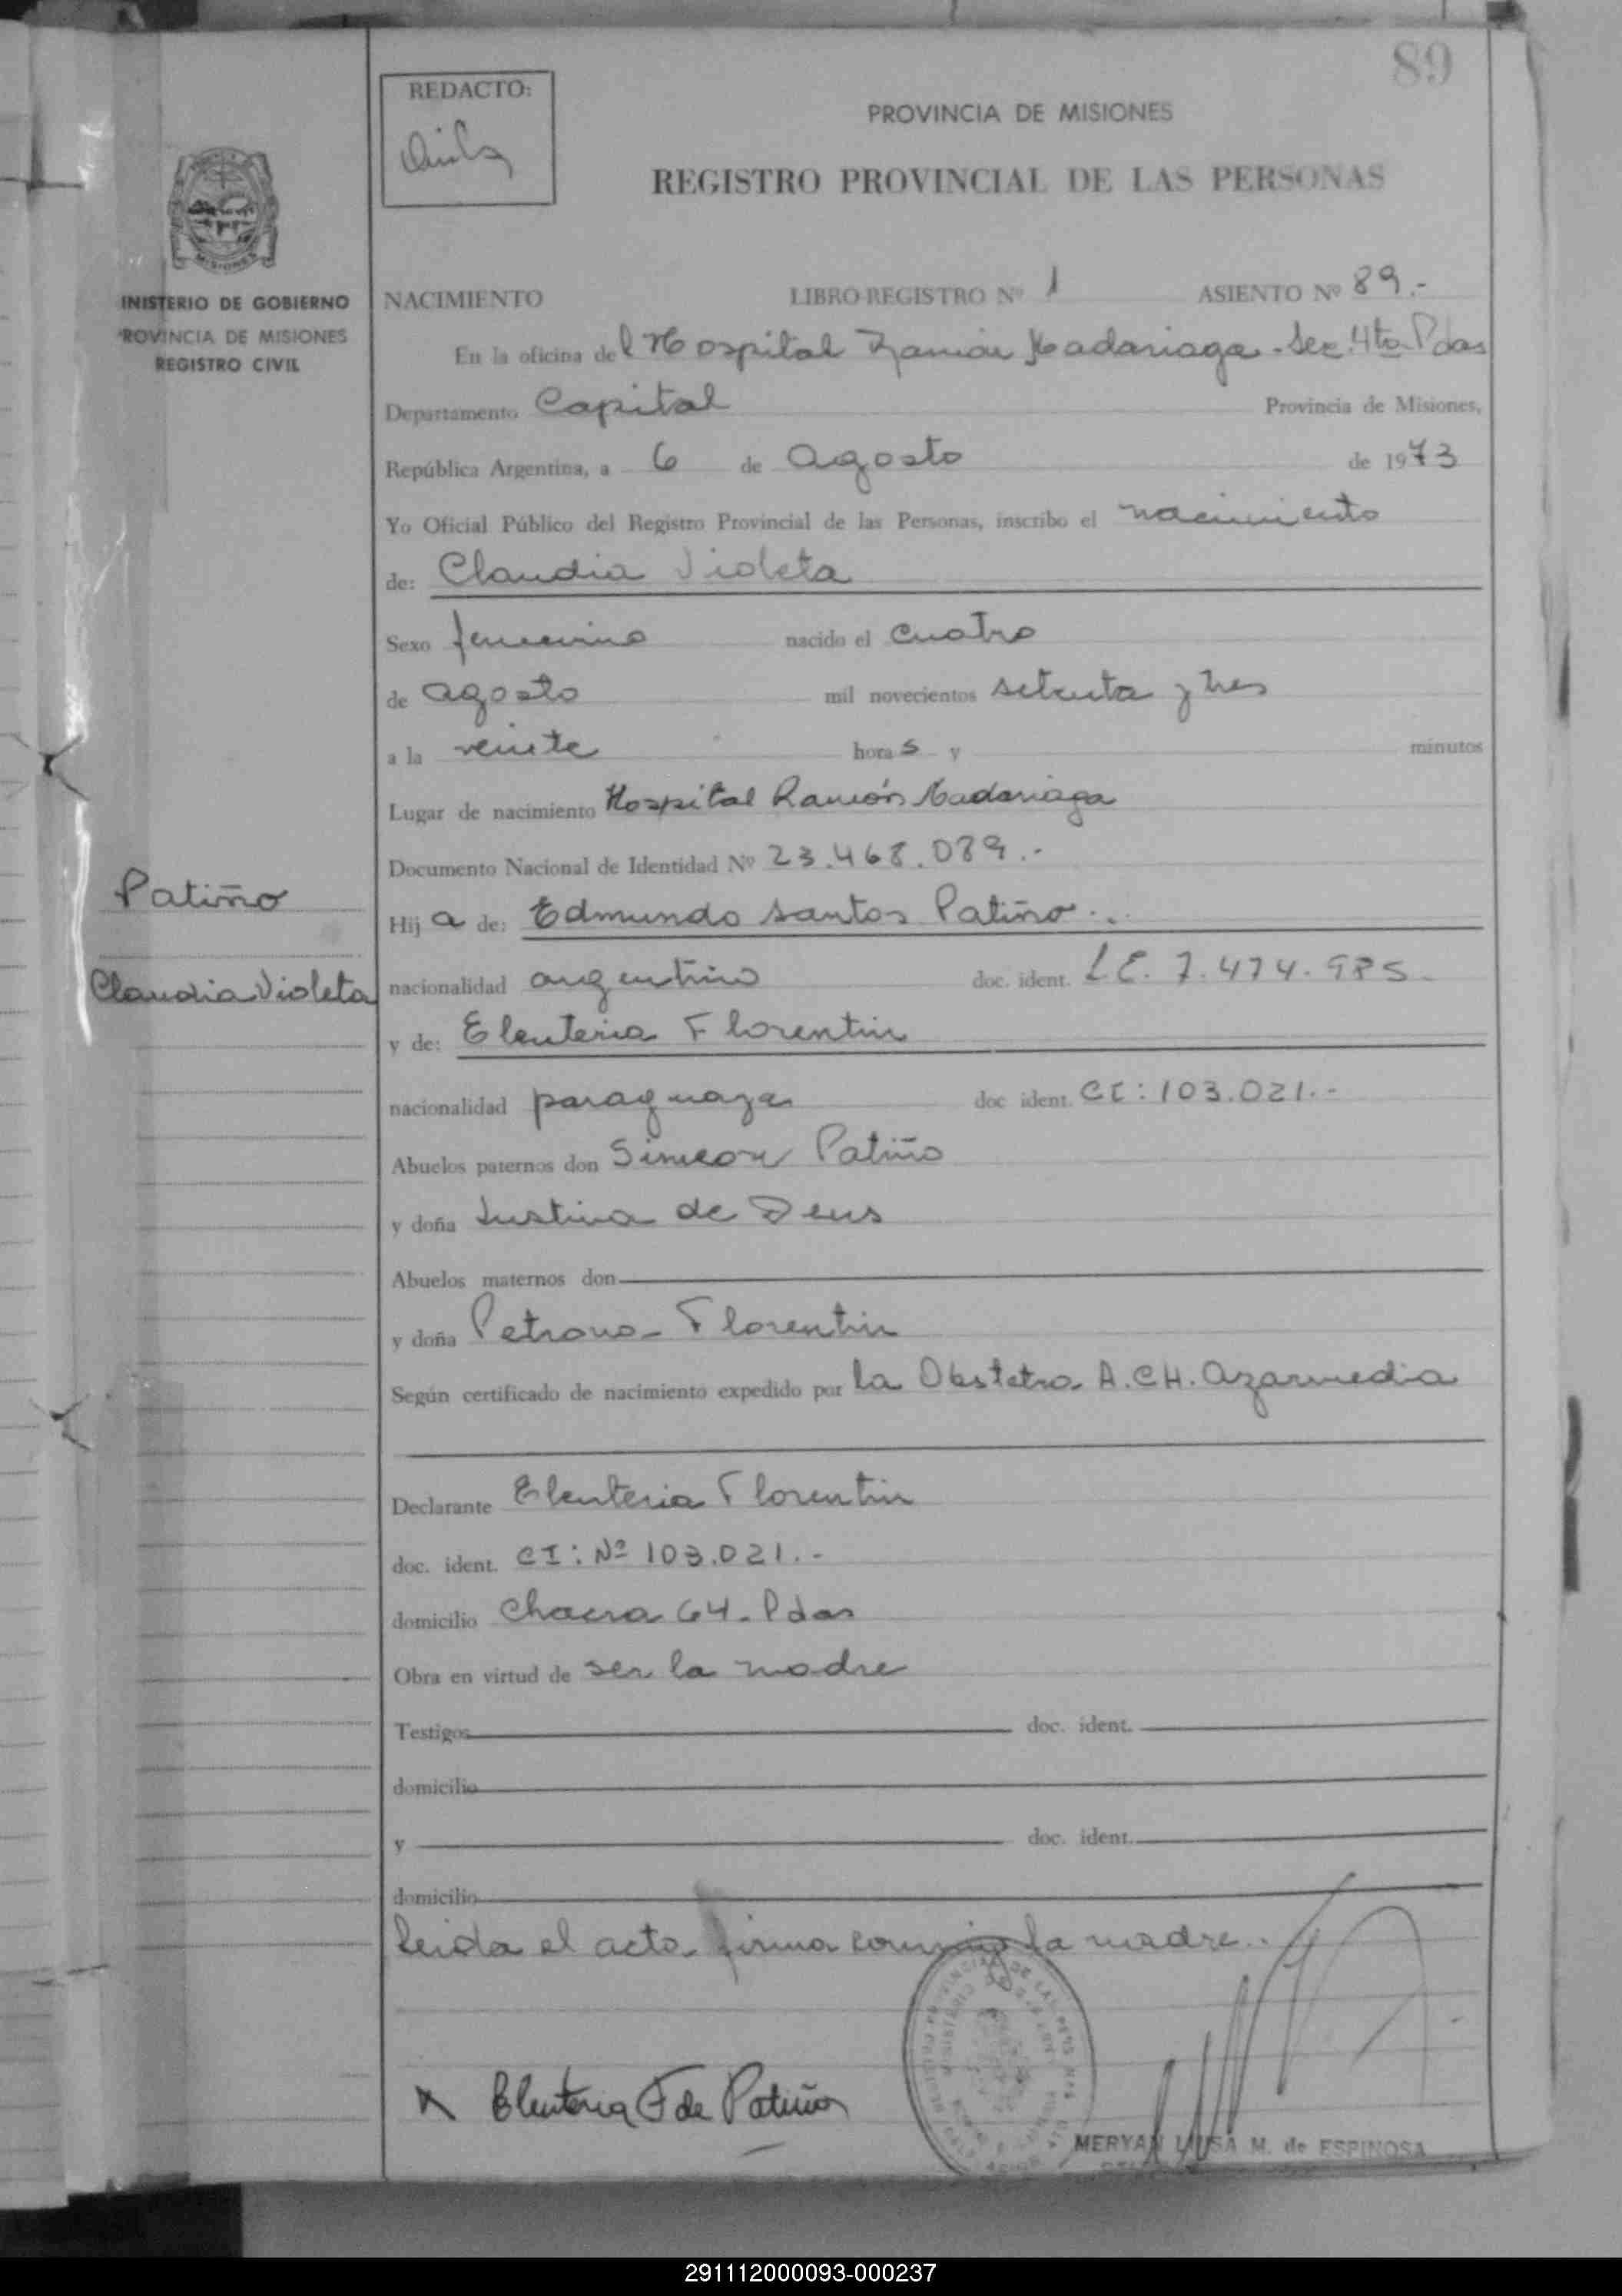 89
REDACTO:
PROVINCIA DE MISIONES
REGISTRO PROVINCIAL DE LAS PERSONAS
MISIONES
INISTERIO DE GOBIERNO
PROVINCIA DE MISIONES
REGISTRO CIVIL
NACIMIENTO LIBRO REGISTRO Nº 1 ASIENTO Nº 89.-
En la oficina del Hospital Ramón Madariaga - Sec. 4ta. Pdas
Departamento Capital Provincia de Misiones,
República Argentina, a 6 de agosto de 1973
Yo Oficial Público del Registro Provincial de las Personas, inscribo el nacimiento
de: Claudia Violeta
Sexo femenino nacido el cuatro
de agosto mil novecientos setenta y tres
a la veinte horas y minutos
Lugar de nacimiento Hospital Ramón Madariaga
Documento Nacional de Identidad Nº 23.468.089.-
Patiño
Hija de: Edmundo Santos Patiño..
Claudia Violeta
nacionalidad argentino doc. ident. L.E. 7.474.985-
y de: Eleuteria Florentin
nacionalidad paraguaya doc ident. CI: 103.021.-
Abuelos paternos don Simeon Patiño
y doña Justina de Deus
Abuelos maternos don
y doña Petrona Florentin
Según certificado de nacimiento expedido por la Obstetra A. CH. Azarmedia
Declarante Eleuteria Florentin
doc. ident. CI: Nº 103.021.-
domicilio Chacra 64. Pdas
Obra en virtud de ser la madre
Testigos doc. ident.
domicilio
y doc. ident.
domicilio
Leida el acta firma conmigo la madre..
x Eleuteria F de Patiño
MERYAN LUISA M. de ESPINOSA
291112000093-000237